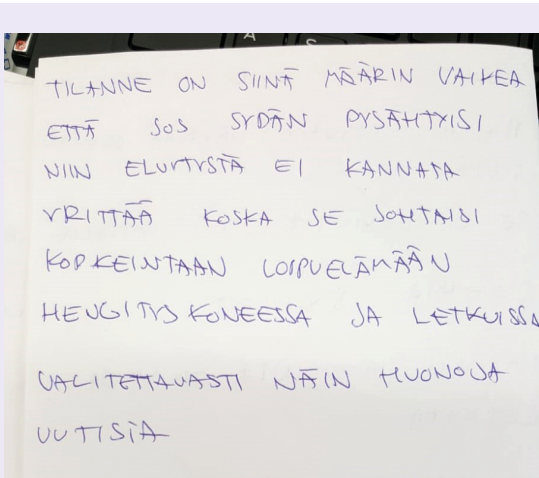 TILANNE ON SIINÄ MÄÄRIN VAIKEA
ETTÄ JOS SYDÄN PYSÄHTYISI
NIIN ELVYTYSTÄ EI KANNATA
YRITTÄÄ KOSKA SE JOHTAISI
KORKEINTAAN LOPPUELÄMÄÄN
HENGITYSKONEESSA JA LETKUISSA
VALITETTAVASTI NÄIN HUONOJA
UUTISIA